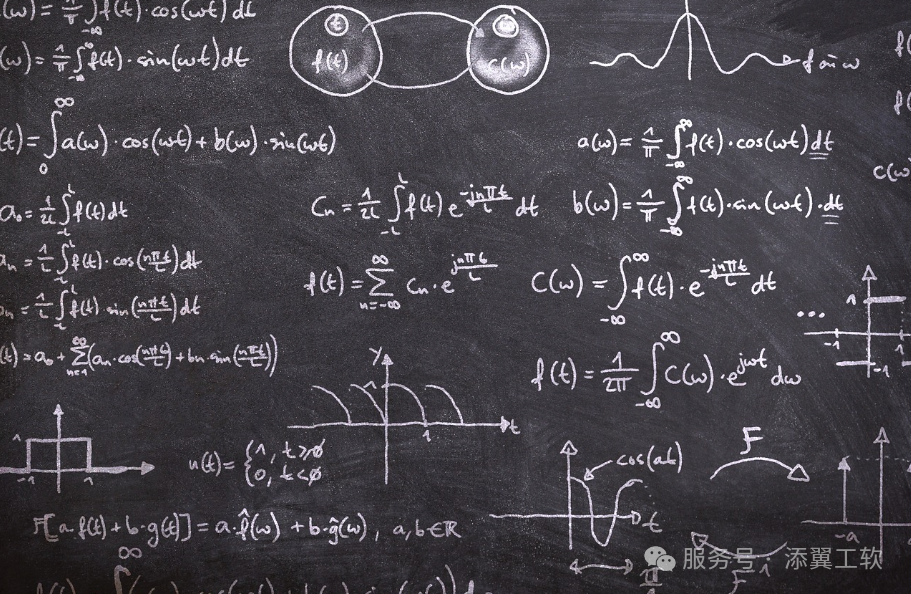 (ω) = 1/π ∫ f(t)·cos(ωt) dt
(ω) = 1/π ∫_{-∞}^{∞} f(t)·sin(ωt) dt
t
f(t)
c(ω)
f in ω
(t) = ∫_0^∞ a(ω)·cos(ωt) + b(ω)·sin(ωt)
a(ω) = 1/π ∫_{-∞}^{∞} f(t)·cos(ωt) dt
c(ω)
a₀ = 1/2L ∫_{-L}^{L} f(t) dt
Cₙ = 1/2L ∫_{-L}^{L} f(t) e^{-jnπt/L} dt
b(ω) = 1/π ∫_{-∞}^{∞} f(t)·sin(ωt)·dt
aₙ = 1/L ∫_{-L}^{L} f(t)·cos(nπt/L) dt
f(t) = Σ_{n=-∞}^{∞} Cₙ·e^{jnπt/L}
C(ω) = ∫_{-∞}^{∞} f(t)·e^{-jnπt/L} dt
bₙ = 1/L ∫_{-L}^{L} f(t)·sin(nπt/L) dt
... -1 1 1 -1
(t) = a₀ + Σ_{n=1}^{∞} (aₙ·cos(nπt/L) + bₙ·sin(nπt/L))
f(t) = 1/2π ∫_{-∞}^{∞} C(ω)·e^{jωt} dω
y 1 1 t
1 -1 1
u(t) = {1, t≥0
0, t<0
cos(at)
t
F
F[a·f(t) + b·g(t)] = a·f̂(ω) + b·ĝ(ω), a,b∈ℝ
-a
F⁻¹
服务号 · 添翼工软